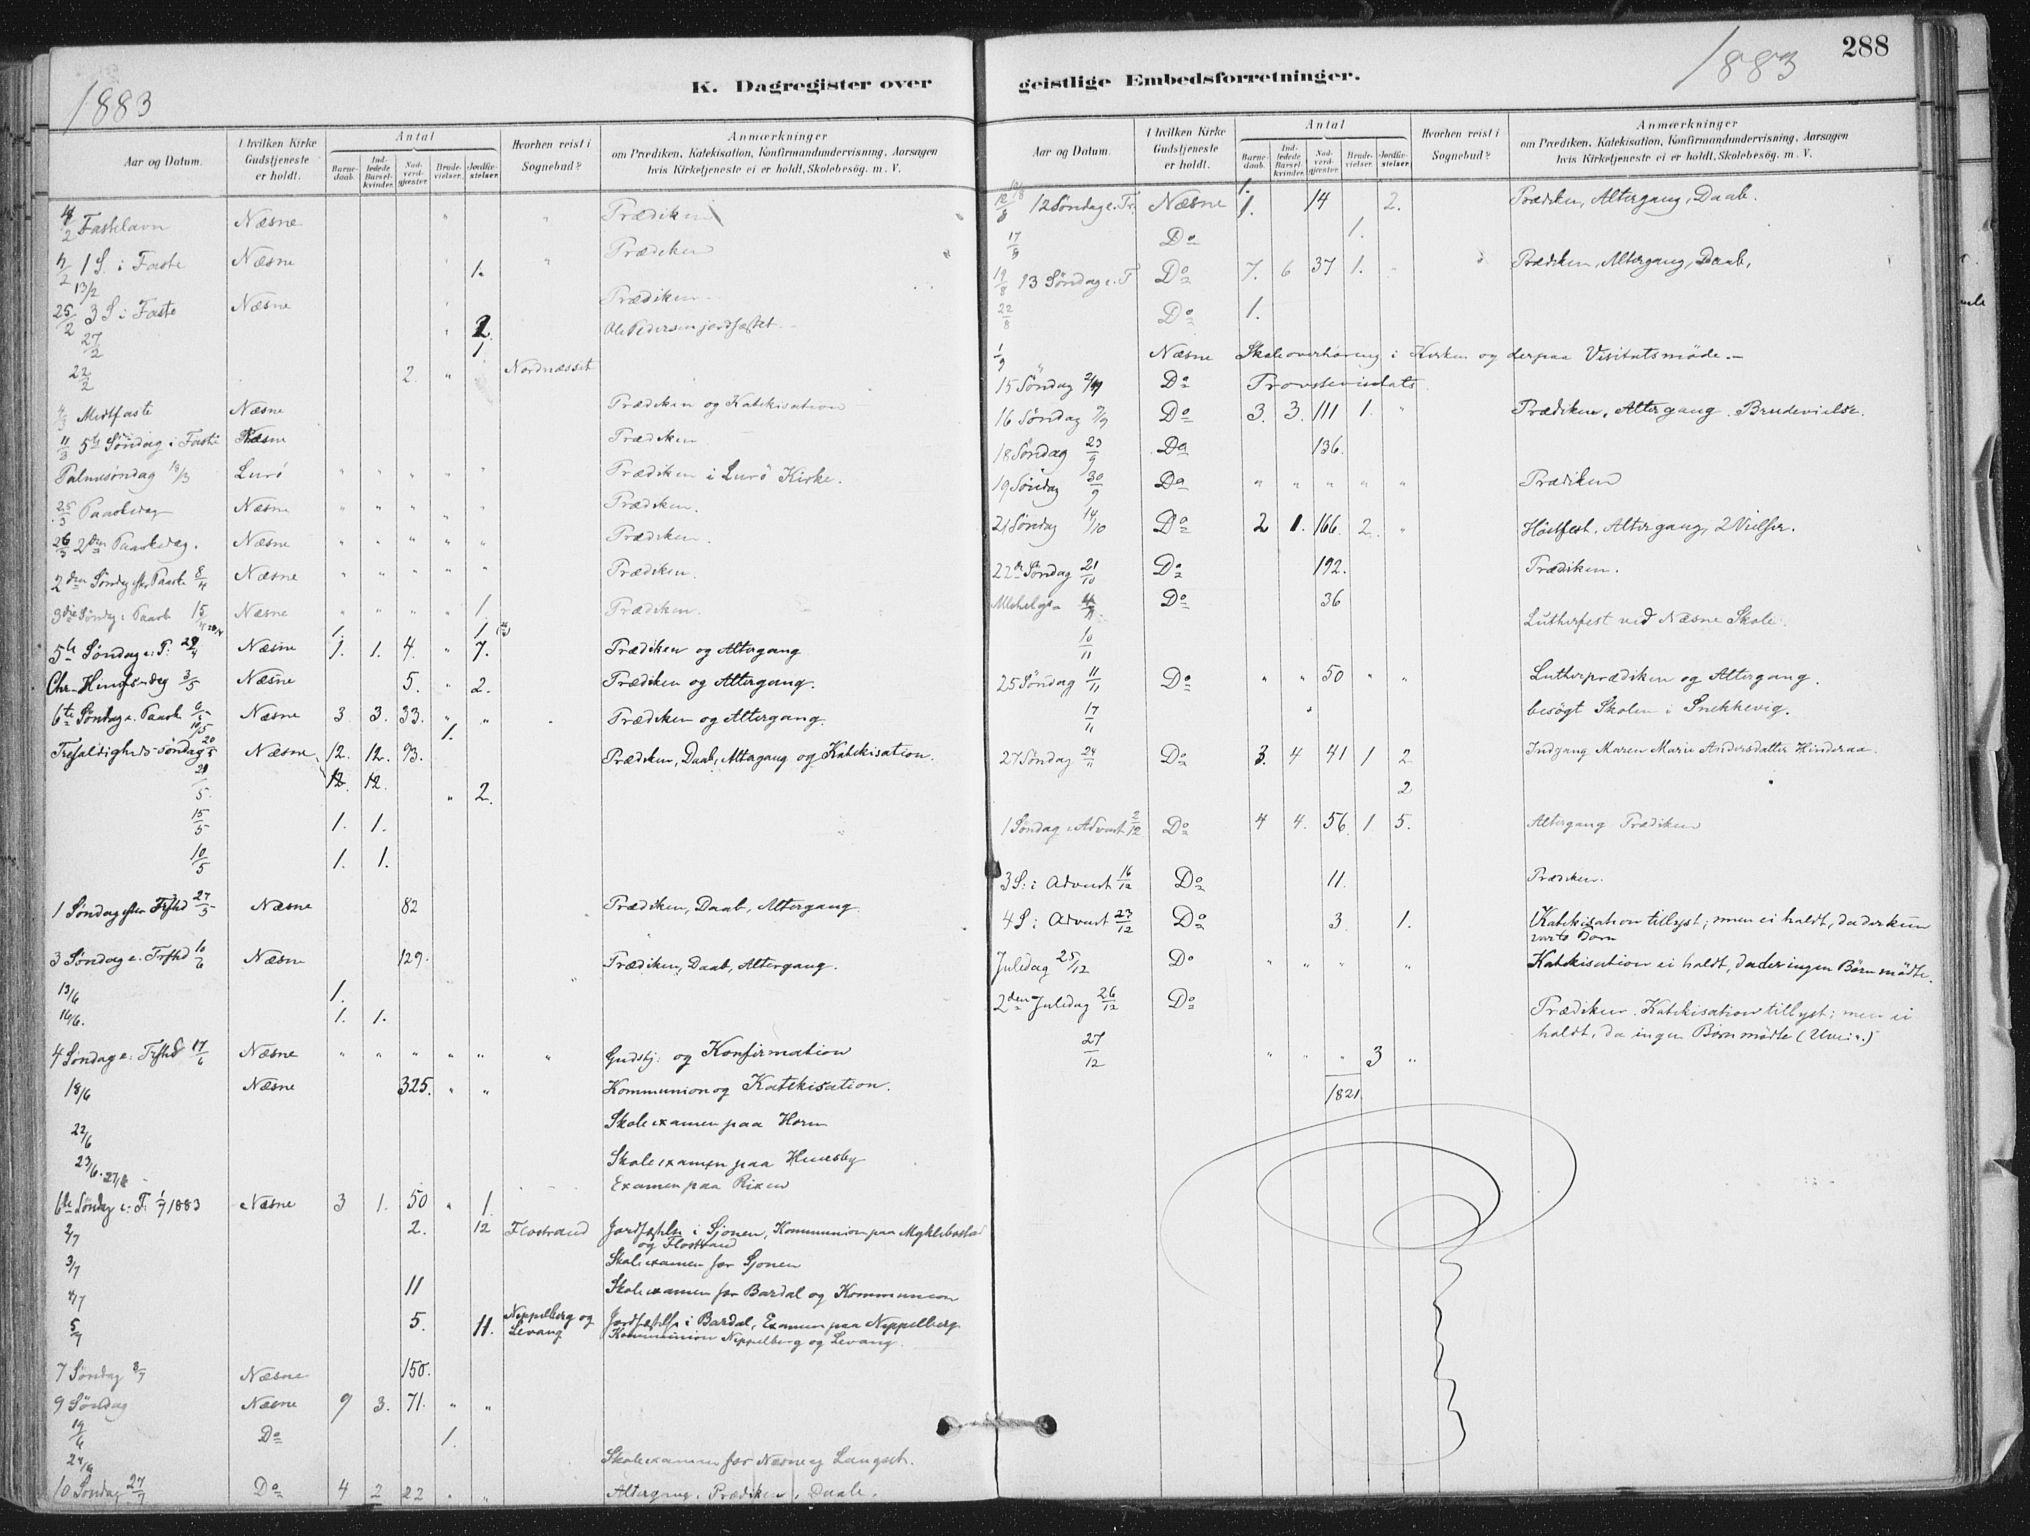 1883
K. Dagregister over
Aar og Datum.
I hvilken Kirke Gudstjeneste er holdt.
Antal
Barnedaab.
Indledede Barselkvinder.
Nadverdgjæster
Brudevielser.
Jordfæstelser.
Hvorhen reist i Sognebud?
Anmærkninger
om Prædiken, Katekisation, Konfirmandundervisning, Aarsagen
hvis Kirketjeneste ei er holdt, Skolebesøg. m. V.
4/2 Fastelavn Næsne " " Prædiken
1 S. i Faste Næsne " " Prædiken
13/2 1.
25/2 3 S. i Faste Næsne Prædiken
27/2 " 2. Ole Pedersen jordfæstet.
1.
22/2 2. " Nordnæsset
4/3 Midtfaste Næsne Prædiken og Katekisation
11/3 5te Søndag i Faste Næsne Prædiken
Palmesøndag 18/3 Lurö " " " " " Prædiken i Lurö Kirke.
25/3 Paaskedag Næsne " " " " " Prædiken.
26/3 2den Paaskedag. Næsne " " " " " Prædiken.
2den Søndag efter Paaske 8/4 Næsne " " " " " Prædiken.
3die Søndag e. Paask 15/4 Næsne " " " " 1. Prædiken.
1. 1
5te Søndag e. P. 29/4 Næsne 1. 1. 4. " 7. Prædiken og Altergang
Chr. Himfs-dag 3/5 Næsne 5. " 2. Prædiken og Altergang.
6te Søndag e. Paask 6/5 Næsne 3. 3. 33. " " Prædiken og Altergang.
10/5 1.
Trefoldigheds-søndag 20/5 Næsne 12. 12. 93. Prædiken, Daab, Altergang og Katekisation.
21/5. 12. 12. " 2.
15/5 1. 1.
10/5 1. 1.
1 Søndag efter Trfhd 27/5 Næsne 82 Prædiken, Daab, Altergang
3 Søndag e. Trfhd 10/6 Næsne 129. Prædiken, Daab, Altergang.
13/6 1.
16/6. 1. 1.
4 Søndag e: Trfhd 17/6 Næsne " " " " " " Gudstj: og Konfirmation
18/6 Næsne 325. " " Kommunion og Katekisation.
22/6 Skoleexamen paa Horn
23/6. Skoleexamen paa Husby
Examen paa Rixen
6te Søndag e. T. 1/7 1883 Næsne 3 1. 50 " 1.
2/7 2. 12 Flostrand Jordfæstelse i Sjonen, Kommunion paa Myklebostad
og Flostrand
3/7 Skoleexamen for Sjonen
4/7 11 Skoleexamen for Bardal og Kommunion
5/7 5. 11. Neppelberg og Levang Jordfæstelse i Bardal, Examen paa Neppelberg
Kommunion Neppelberg og Levang.
7 Søndag 8/7 Næsne 150.
9 Søndag Næsne 9 3. 71. " "
19/6 Do 1.
24/6 Skoleexamen for Næsne og Langset.
10 Søndag Do 4 2 22 " " Altergang, Prædiken, Daab.
288
1883
geistlige Embedsforretninger.
Aar og Datum.
I hvilken Kirke Gudstjeneste er holdt.
Antal
Barnedaab.
Indledede Barselkvinder.
Nadverdgjæster
Brudevielser.
Jordfæstelser.
Hvorhen reist i Sognebud?
Anmærkninger
om Prædiken, Katekisation, Konfirmandundervisning, Aarsagen
hvis Kirketjeneste ei er holdt, Skolebesøg. m. V.
1.
12/8 12 Søndag e. Tr. Næsne 1. 14 2. Prædiken, Altergang, Daab.
Do 1.
19/8 13 Søndag e. T Do 7. 6 37 1. " Prædiken, Altergang, Daab,
22/8 Do 1.
1/9 " Næsne Skoleoverhøring i Kirken og derpaa Visitatsmøde.
15 Søndag 2/9 Do Provstevisitats.
16 Søndag 9/9 Do 3. 3. 111 1. " Prædiken, Altergang. Brudevielse.
18 Søndag 23/9 Do 136.
19 Søndag 30/9 Do " " " " " Prædiken
21 Søndag 14/10 Do 2 1. 166. 2. " Höstfest, Altergang, 2 Vielser.
22de Søndag 21/10 Do 192. Prædiken.
Allehelgs- Do 36
10/11 Lutherfest ved Næsne Skole.
25 Søndag 11/11 Do " " 50 " " Lutherprædiken og Altergang.
17/11 besögt Skolen i Snekkevig.
27 Søndag 24/11 Do 3. 4 41 1 2. Indgang Maren Marie Andersdatter Hinderaa.
2
1 Søndag i Advent 2/12 Do 4 4. 56. 1. 5. Altergang Prædiken
3 S: i Advent 16/12 Do 11. Prædiken.
4 S: i Advent 23/12 Do 3. 1. Katekisation tillyst; men ei holdt, da der kun
vare Børn
Juledag 25/12 Do " " " " " Katekisation ei holdt, da der ingen Børn mödte.
2den Juledag 26/12 Do Prædiken. Katekisation tillyst; men ei
holdt, da ingen Børn mödte (Uveir.)
27/12 " " " 3 "
1821.